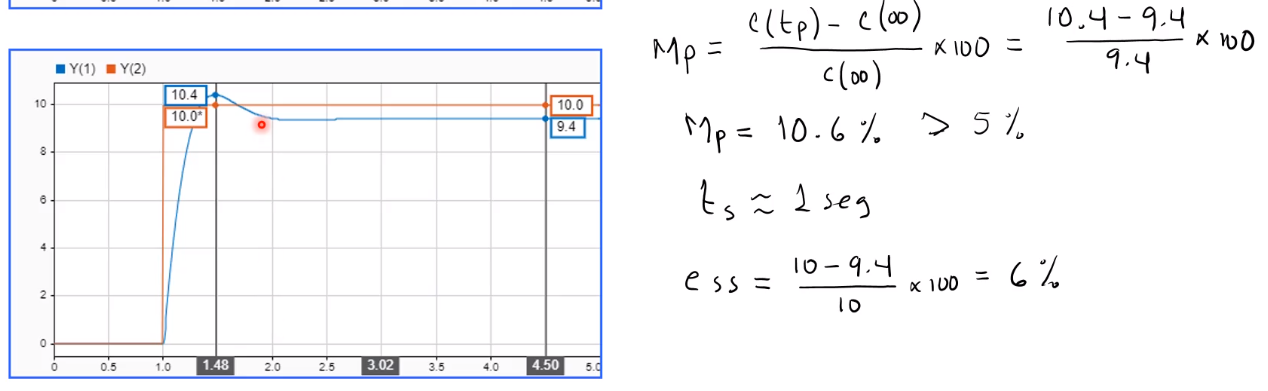 0 0.5 1.0 1.5 2.0 2.5 3.0 3.5 4.0 4.5 5.0
Y(1) Y(2)
10.4
10.0*
10.0
9.4
10
8
6
4
2
0
0 0.5 1.0 1.48 2.0 2.5 3.02 3.5 4.0 4.50 5.0
Mp = c(tp) - c(∞) / c(∞) × 100 = 10.4 - 9.4 / 9.4 × 100
Mp = 10.6 % > 5 %
ts ≈ 1 seg
ess = 10 - 9.4 / 10 × 100 = 6 %